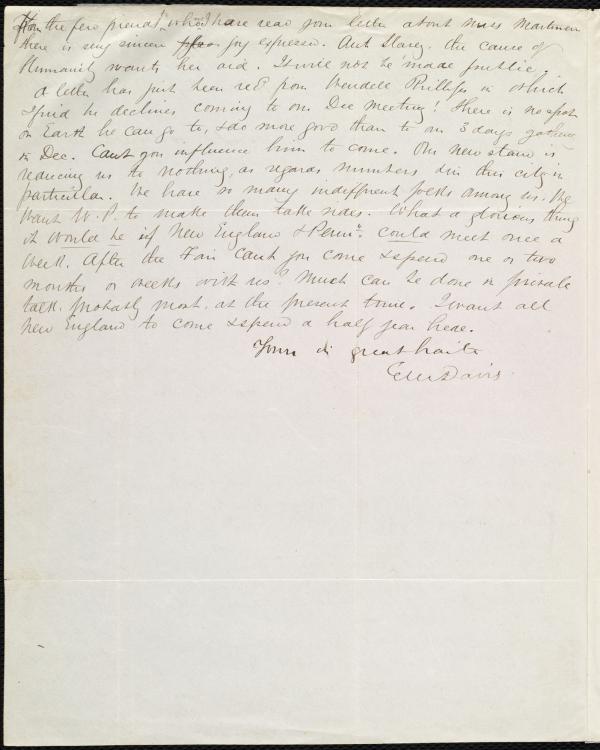 From the few friends to whom I have read your letter about Miss Martineau
there is very sincere joy expressed. Anti Slavery. the cause of
Humanity wants her aid. It will not be made public.
A letter has just been recd from Wendell Phillips in which
I find he declines coming to our Dec meeting! There is no spot
on Earth he can go to, & do more good than to our 3 days gathering
in Dec. Cant you influence him to come. Our new stand is
reducing us to nothing, as regards numbers in this city in
particular. We have so many indifferent folks among us. We
want W. P. to make them take sides. What a glorious thing
it would be if New England & Penna. could meet once a
week. After the Fair Cant you come & spend one or two
months or weeks with us? Much can be done in private
talk. probably most. at the present time. I want all
New England to come & spend a half year here.
Yours in great haste
E M Davis